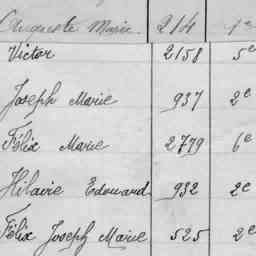 Auguste Marie 214 1e
Victor 2158 5e
Joseph Marie 937 2e
Félix Marie 2779 6e
Hilarie Edouard 932 2e
Félix Joseph Marie 525 2e